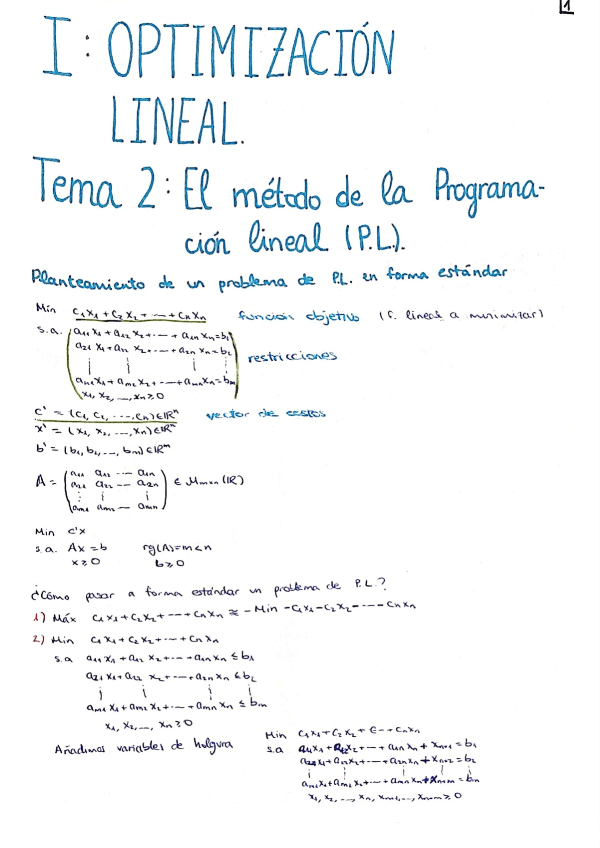 1
I: OPTIMIZACIÓN
LINEAL.
Tema 2: El método de la Programa-
ción lineal (P.L.).
Planteamiento de un problema de P.L. en forma estándar
Mín c₁x₁ + c₂x₂ + ... + cₙxₙ función objetivo (f. lineal a minimizar)
s.a. a₁₁x₁ + a₁₂x₂ + ... + a₁ₙxₙ = b₁
a₂₁x₁ + a₂₂x₂ + ... + a₂ₙxₙ = b₂
restricciones
aₘ₁x₁ + aₘ₂x₂ + ... + aₘₙxₙ = bₘ
x₁, x₂, ..., xₙ ≥ 0
c' = (c₁, c₂, ..., cₙ) ∈ ℝⁿ vector de costos
x' = (x₁, x₂, ..., xₙ) ∈ ℝⁿ
b' = (b₁, b₂, ..., bₘ) ∈ ℝᵐ
a₁₁ a₁₂ ... a₁ₙ
A = a₂₁ a₂₂ ... a₂ₙ ∈ Mₘₓₙ (ℝ)
aₘ₁ aₘ₂ ... aₘₙ
Min c'x
s.a. Ax = b rg(A) = m < n
x ≥ 0 b ≥ 0
¿Cómo pasar a forma estándar un problema de P.L.?
1) Máx c₁x₁ + c₂x₂ + ... + cₙxₙ ≅ - Min -c₁x₁ - c₂x₂ - ... - cₙxₙ
2) Min c₁x₁ + c₂x₂ + ... + cₙxₙ
s.a a₁₁x₁ + a₁₂x₂ + ... + a₁ₙxₙ ≤ b₁
a₂₁x₁ + a₂₂x₂ + ... + a₂ₙxₙ ≤ b₂
aₘ₁x₁ + aₘ₂x₂ + ... + aₘₙxₙ ≤ bₘ
x₁, x₂, ..., xₙ ≥ 0
Añadimos variables de holgura
Min c₁x₁ + c₂x₂ + ... + cₙxₙ
s.a a₁₁x₁ + a₁₂x₂ + ... + a₁ₙxₙ + xₙ₊₁ = b₁
a₂₁x₁ + a₂₂x₂ + ... + a₂ₙxₙ + xₙ₊₂ = b₂
aₘ₁x₁ + aₘ₂x₂ + ... + aₘₙxₙ + xₙ₊ₘ = bₘ
x₁, x₂, ..., xₙ, xₙ₊₁, ..., xₙ₊ₘ ≥ 0